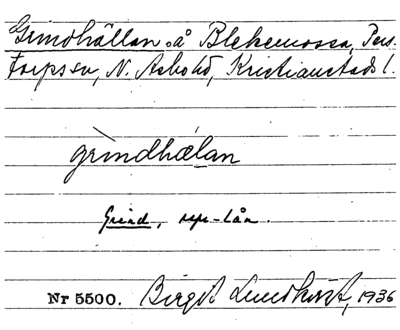 Grindhällan å Blekemossa, Pers-
torps sn, N. Åsbohd, Kristianstads l.
grindhælan
Grind,
Nr 5500. Birgit Lundkvist, 1936